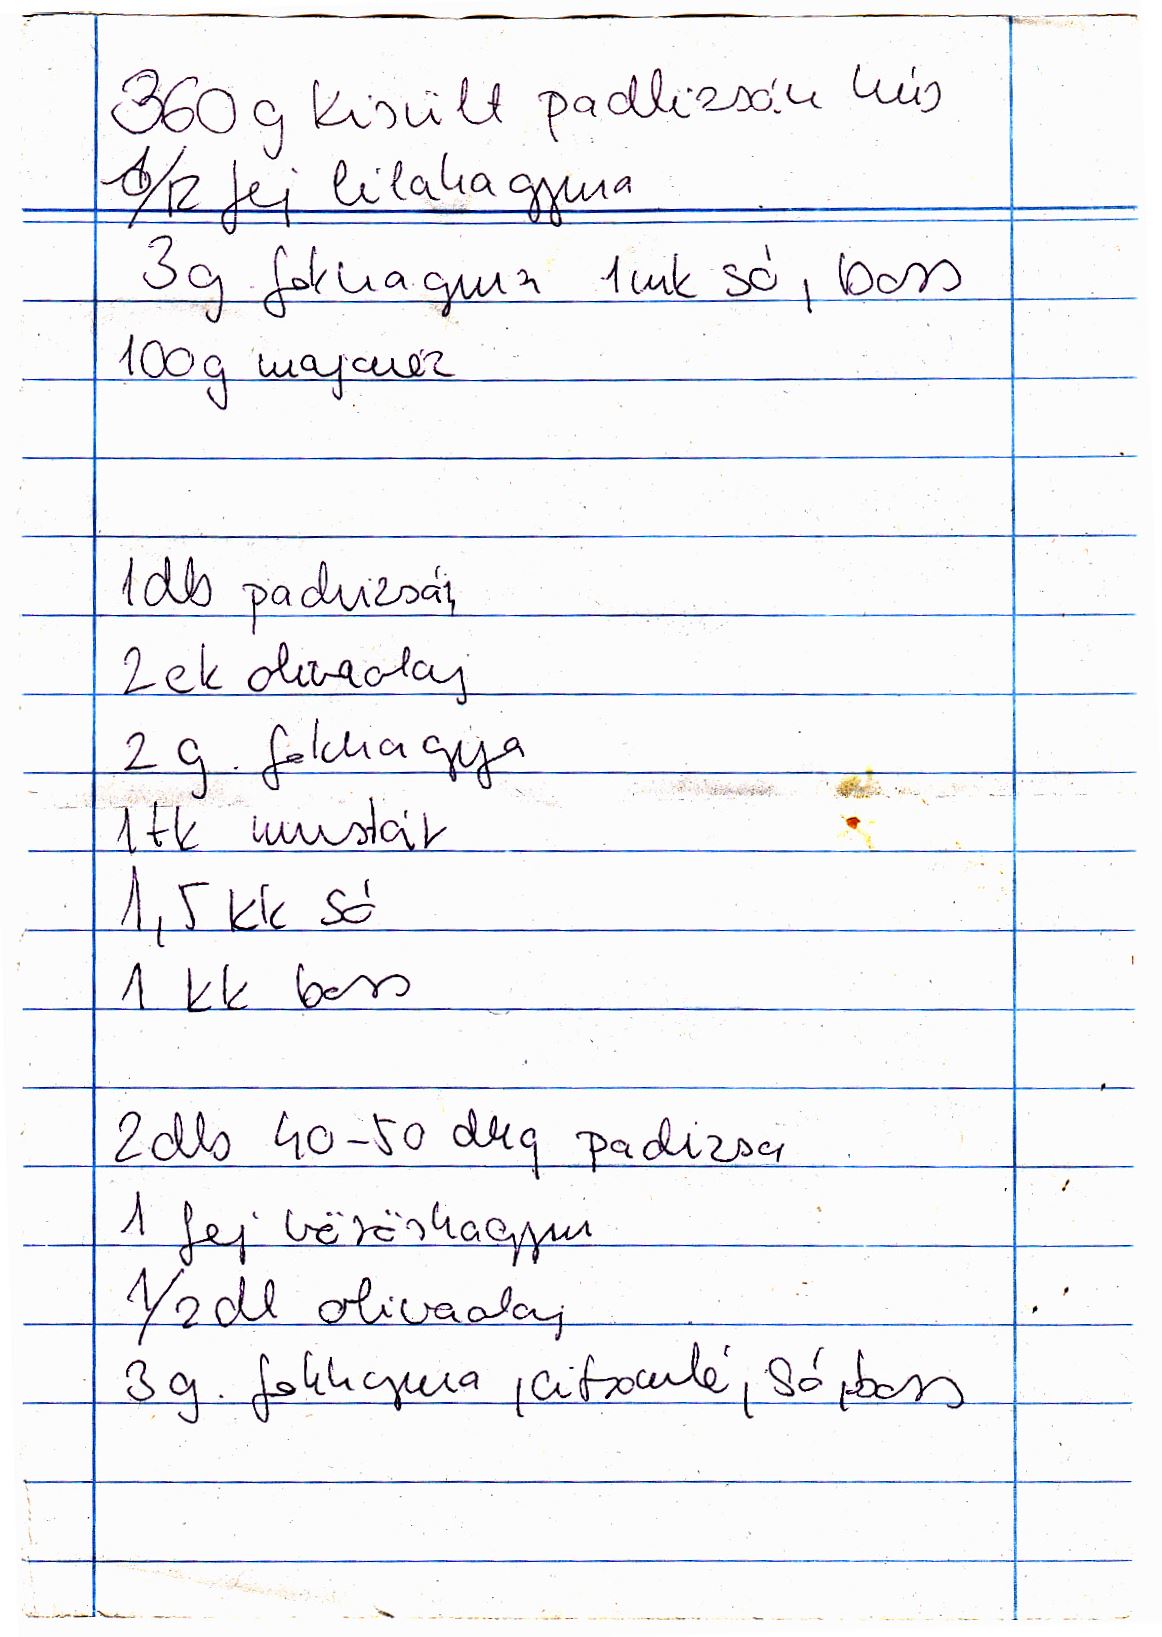 360g kisült padlizsán hús
1/2 fej lilahagyma
3g fokhagyma 1mk só, bors
100g majonéz
1db padlizsán
2ek olivaolaj
2 g. fokhagya
1tk mustár
1,5 kk só
1 kk bors
2db 40-50 dkg padizsa
1 fej vöröshagym
1/2 dl olivaolaj
3 g. fokhagyma, citromlé, só, bors